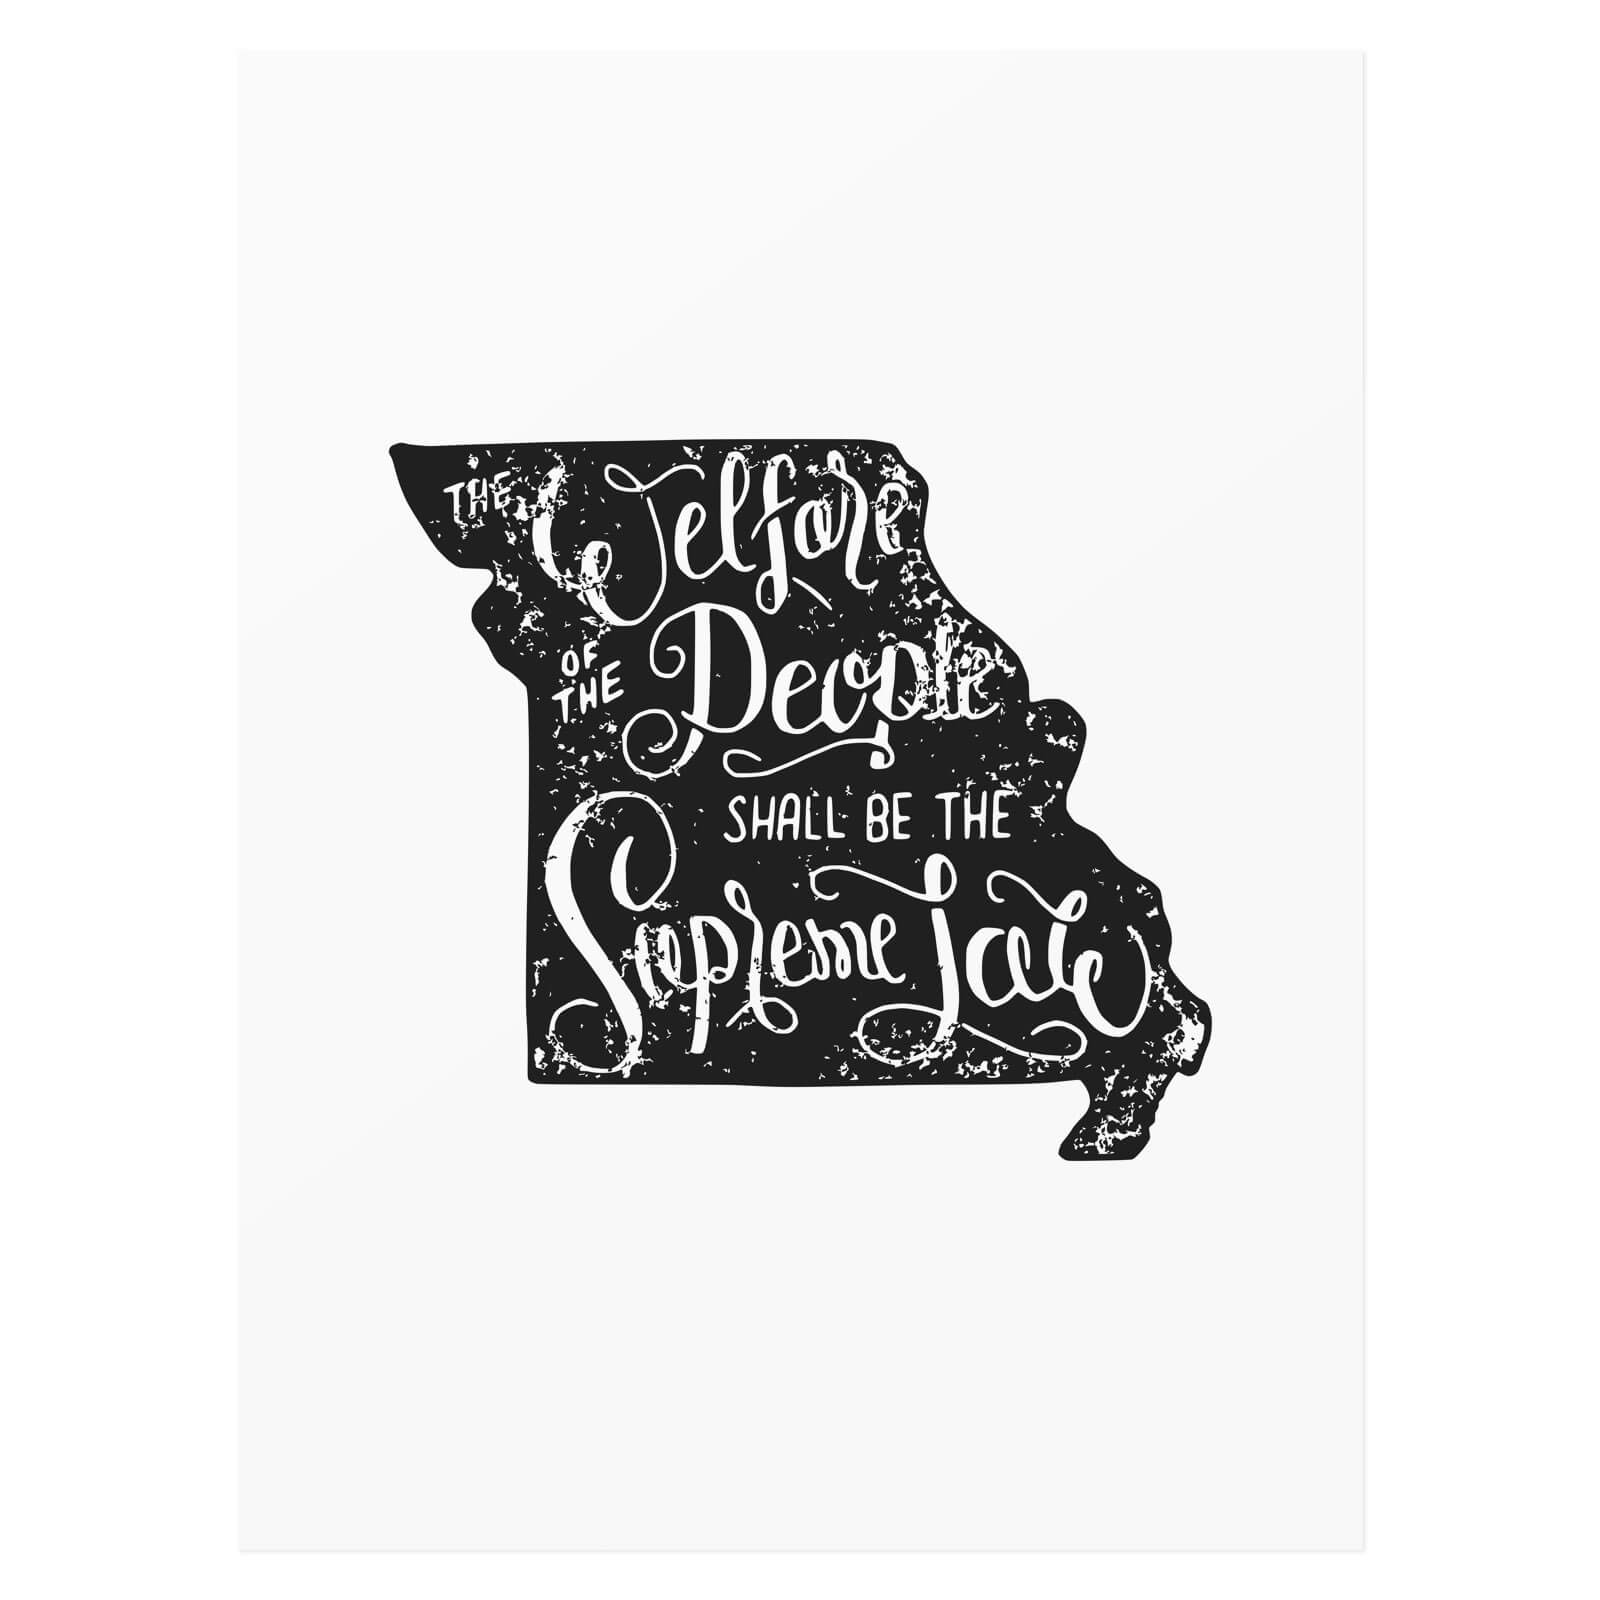 THE Welfare
OF THE People
SHALL BE THE
Supreme Law